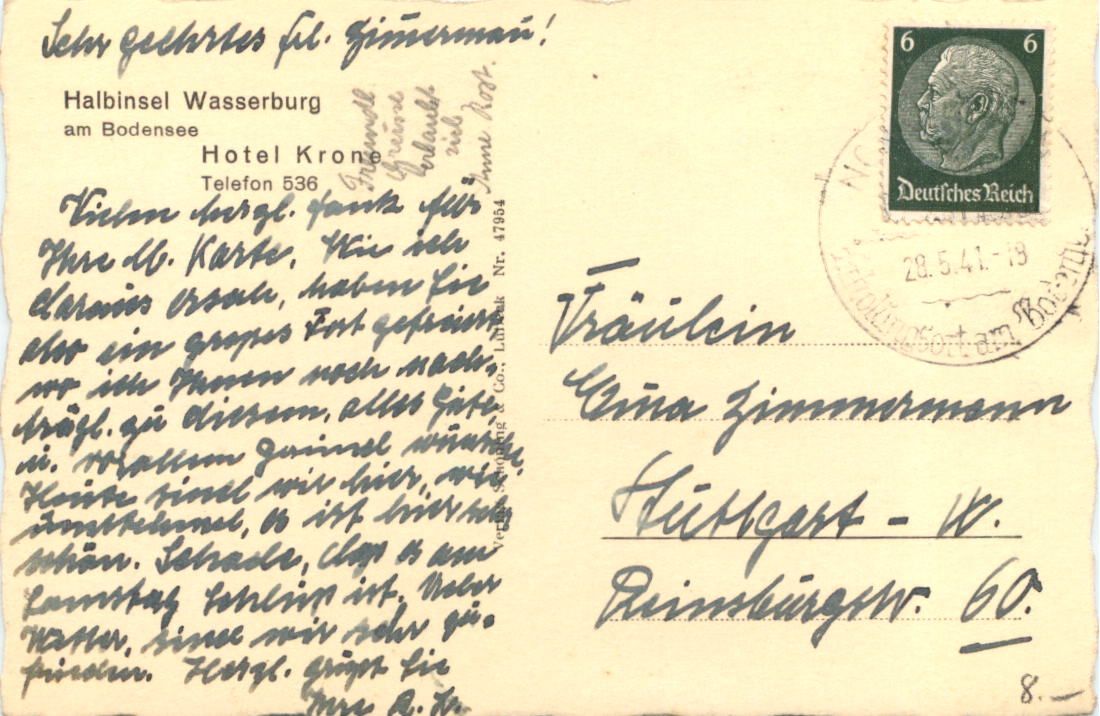 Sehr geehrtes Frl. Zimmermann!
Halbinsel Wasserburg
am Bodensee
Hotel Krone
Telefon 536
Freundl.
Grüsse
erlaubt
sich
Anne Rost.
Vielen herzl. Dank für
Ihre lb. Karte. Wie ich
daraus ersah, haben Sie
also ein grosses Fest gefeiert
wo ich Ihnen noch nach-
trägl. zu diesem, alles Gute
u. vor allem Gesund wünsche
Heute sind wir hier, wie
umstehend, es ist hier sehr
schön. Schade, dass es am
Samstag Schluss ist. Ueber
Wetter, sind wir sehr zu-
frieden. Herzl. grüsst Sie
Ihre
Verlag Schöning & Co., Lübeck Nr. 47954
6 6
Deutsches Reich
28.5.41.-19
am Bodensee
Fräulein
Zimmermann
Stuttgart - W.
Reinsburgstr. 60.
8.—